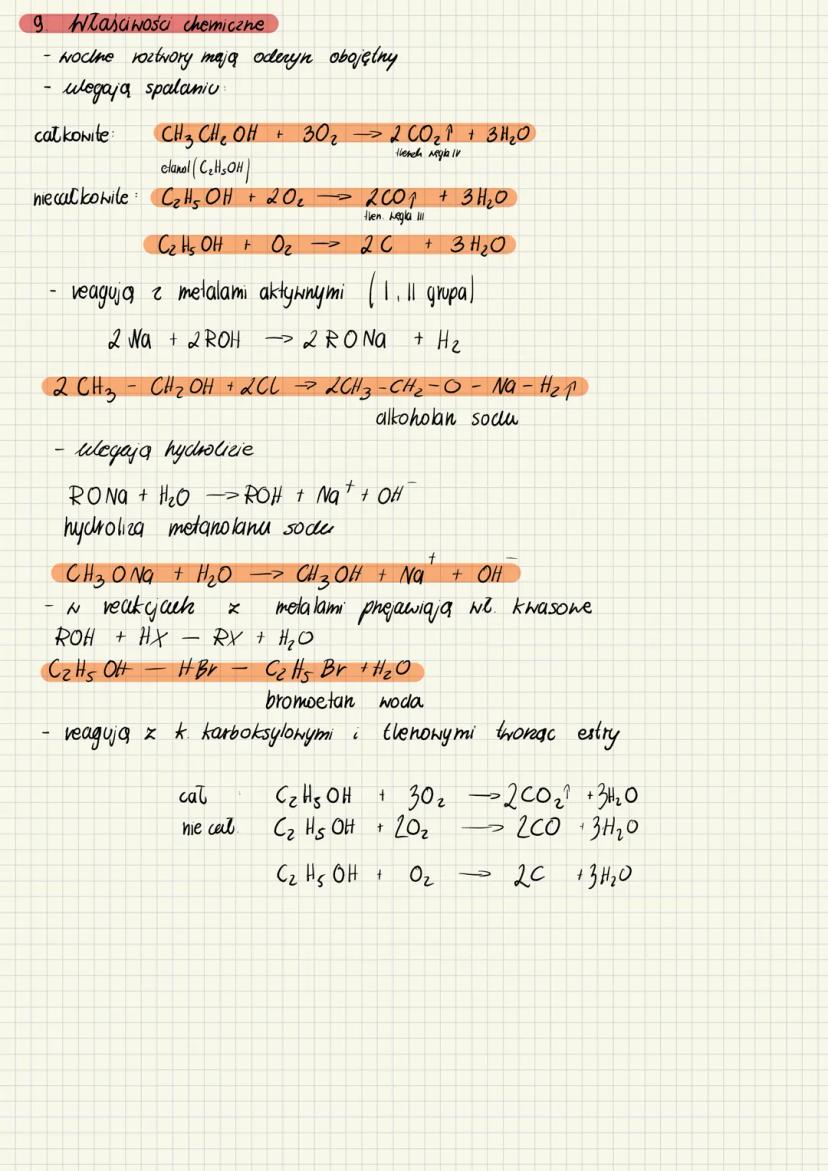 9. Właściwości chemiczne
- wodne roztwory mają odczyn obojętny
- ulegają spalaniu:
całkowite: CH₃CH₂OH + 3O₂ → 2CO₂↑ + 3H₂O
tlenek węgla IV
etanol (C₂H₅OH)
niecałkowite: C₂H₅OH + 2O₂ → 2CO↑ + 3H₂O
tlen. węgla III
C₂H₅OH + O₂ → 2C + 3H₂O
- reagują z metalami aktywnymi (I, II grupa)
2Na + 2ROH → 2RONa + H₂
2CH₃ - CH₂OH + 2Cl → 2CH₃-CH₂-O - Na - H₂↑
alkoholan sodu
- ulegają hydrolizie
RONa + H₂O → ROH + Na⁺ + OH⁻
hydroliza metanolanu sodu
CH₃ONa + H₂O → CH₃OH + Na⁺ + OH⁻
- w reakcjach z metalami przejawiają wł. kwasowe
ROH + HX - RX + H₂O
C₂H₅OH - HBr - C₂H₅Br + H₂O
bromoetan woda
- reagują z k. karboksylowymi i tlenowymi tworząc estry
cał. C₂H₅OH + 3O₂ → 2CO₂↑ + 3H₂O
nie cał. C₂H₅OH + 2O₂ → 2CO + 3H₂O
C₂H₅OH + O₂ → 2C + 3H₂O